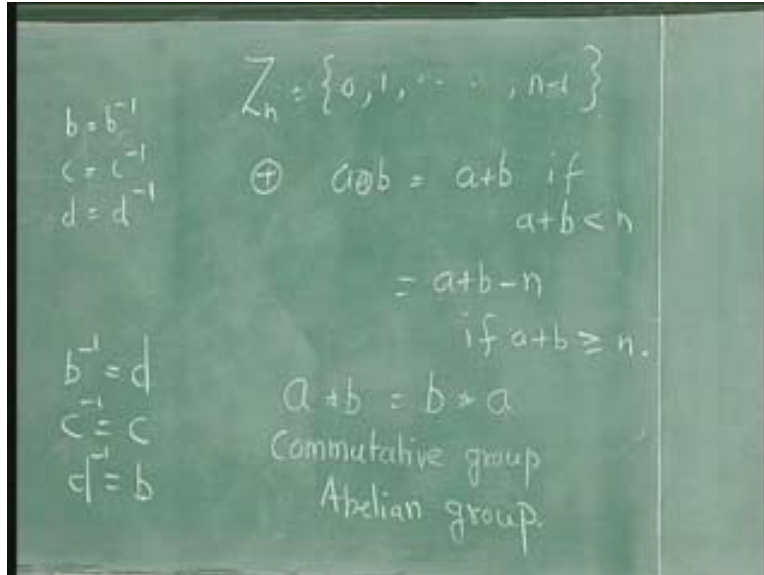 b = b⁻¹
c = c⁻¹
d = d⁻¹
b⁻¹ = d
c⁻¹ = c
d⁻¹ = b
Zₙ = {0, 1, ···· , n-1}
⊕ a⊕b = a+b if
a+b < n
= a+b-n
if a+b ≥ n.
a * b = b * a
Commutative group
Abelian group.